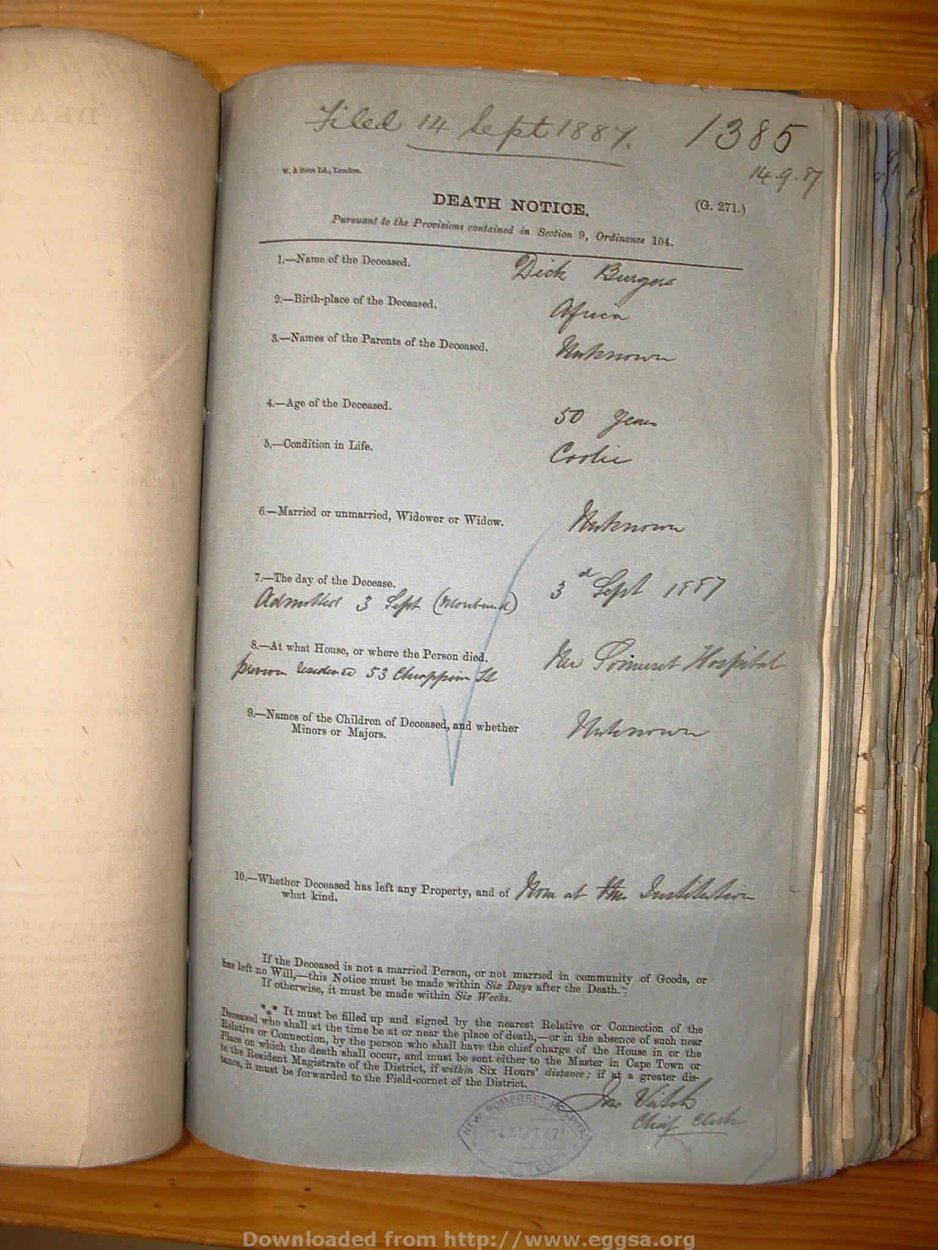 Filed 14 Sept 1887. 1385
14.9.87
W. & Sons Ld., London.
DEATH NOTICE, (G. 271.)
Pursuant to the Provisions contained in Section 9, Ordinance 104.
1.—Name of the Deceased. Dick Burgers
2.—Birth-place of the Deceased. Africa
3.—Names of the Parents of the Deceased. Unknown
4.—Age of the Deceased. 50 Years
5.—Condition in Life. Coolie
6.—Married or unmarried, Widower or Widow. Unknown
7.—The day of the Decease. 3d Sept 1887
Admitted 3 Sept (Moribund)
8.—At what House, or where the Person died. New Somerset Hospital
residence 53 Chiappini St
9.—Names of the Children of Deceased, and whether Unknown
Minors or Majors.
10.—Whether Deceased has left any Property, and of None at this Institution
what kind.
If the Deceased is not a married Person, or not married in community of Goods, or
has left no Will,—this Notice must be made within Six Days after the Death.
If otherwise, it must be made within Six Weeks.
*** It must be filled up and signed by the nearest Relative or Connection of the
Deceased who shall at the time be at or near the place of death,—or in the absence of such near
Relative or Connection, by the person who shall have the chief charge of the House in or the
Place on which the death shall occur, and must be sent either to the Master in Cape Town or
to the Resident Magistrate of the District, if within Six Hours' distance; if at a greater dis-
tance, it must be forwarded to the Field-cornet of the District.
Jno Veitch
Chief Clerk
NEW SOMERSET HOSPITAL
14 SEPT 87
Downloaded from http://www.eggsa.org